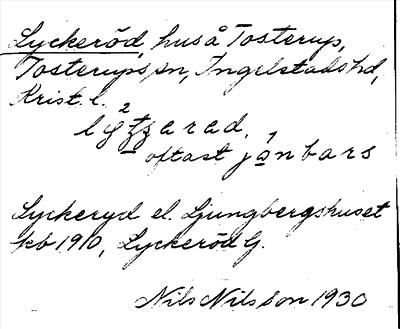 Lyckeröd, hus å Tosterup,
Tosterups sn, Ingelstads hd,
Krist. l.
oftast jo̱nbars
Lyckeryd el. Ljungbergshuset
kb 1910, Lyckeröd G.
Nils Nilsson 1930